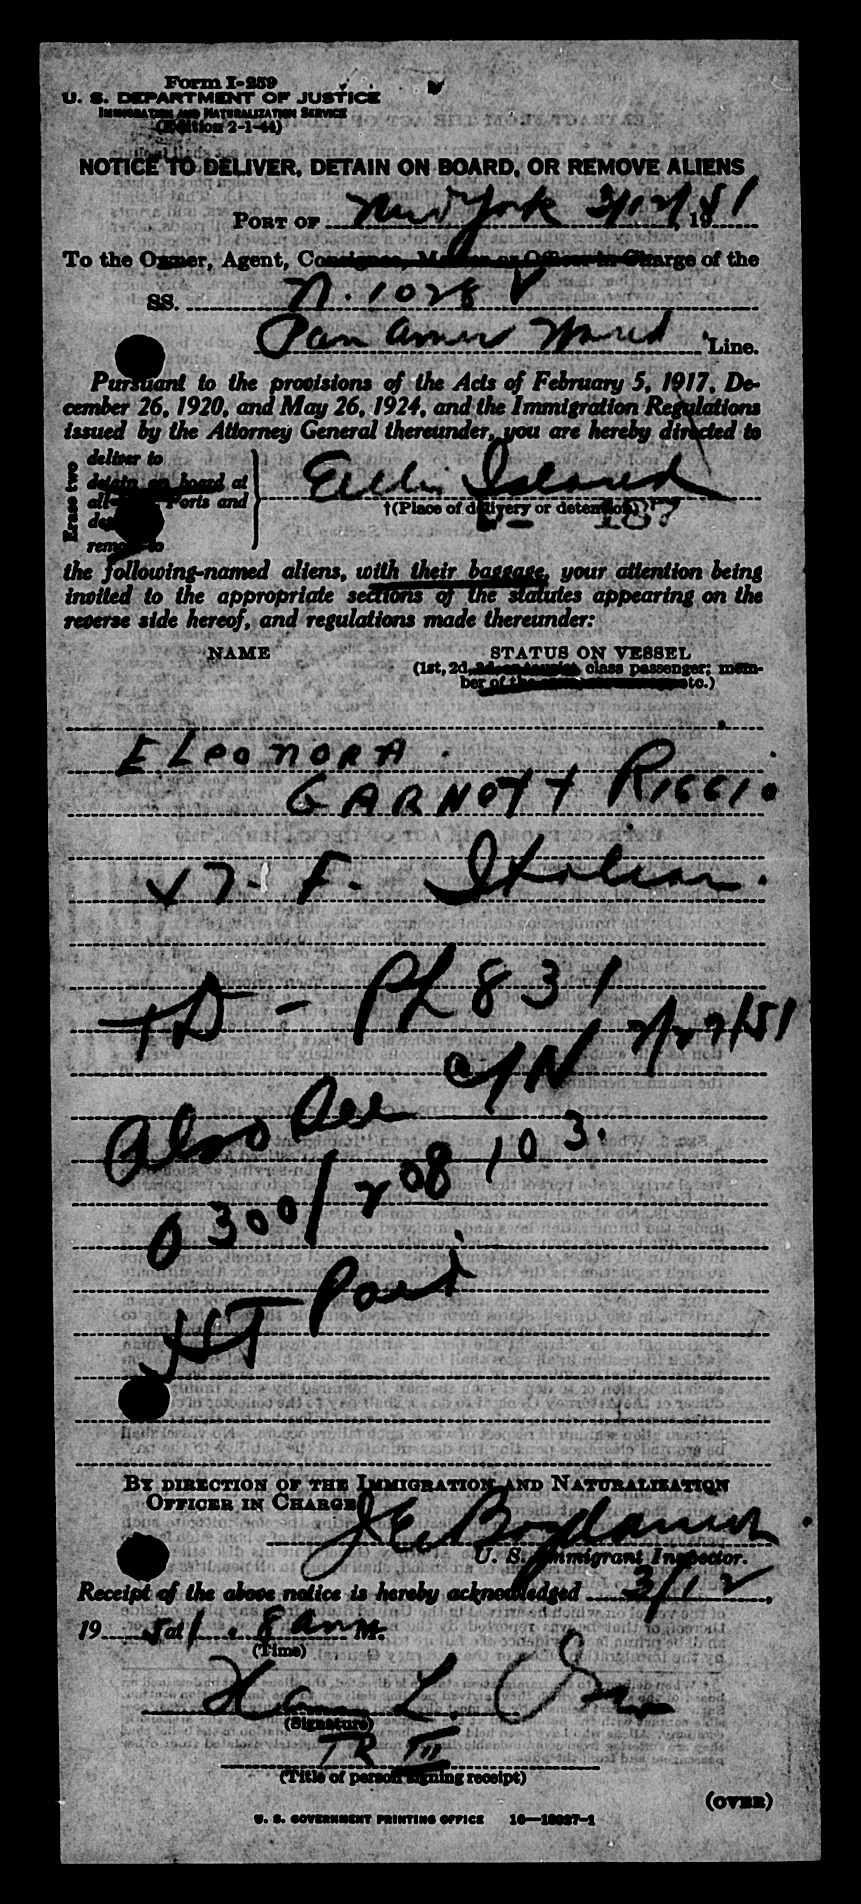 Form I-259
U. S. DEPARTMENT OF JUSTICE
IMMIGRATION AND NATURALIZATION SERVICE
(Edition 2-1-44)
NOTICE TO DELIVER, DETAIN ON BOARD, OR REMOVE ALIENS
PORT OF New York 3/12/, 1951
To the Owner, Agent, Consignee, Master or Officer in Charge of the
SS. N. 1028 V
Pan Amer World Line.
Pursuant to the provisions of the Acts of February 5, 1917, De-
cember 26, 1920, and May 26, 1924, and the Immigration Regulations
issued by the Attorney General thereunder, you are hereby directed to
Erase two
deliver to
detain on board at
all Ports and
remove to
Ellis Island
†(Place of delivery or detention)
187
the following-named aliens, with their baggage, your attention being
invited to the appropriate sections of the statutes appearing on the
reverse side hereof, and regulations made thereunder:
NAME STATUS ON VESSEL
(1st, 2d, class passenger; mem-
ber of the etc.)
ELEONORA
GARNOTY RIGGIO
47. F. Italian.
TD - PL 831
C/N 2/27/51
Also See
0300/208103.
HT Paid
BY DIRECTION OF THE IMMIGRATION AND NATURALIZATION
OFFICER IN CHARGE
U. S. Immigrant Inspector.
Receipt of the above notice is hereby acknowledged 3/12,
1951, at 8 am M.
(Time)
L.
(Signature)
(Title of person signing receipt)
(OVER)
U. S. GOVERNMENT PRINTING OFFICE 16—18027-1